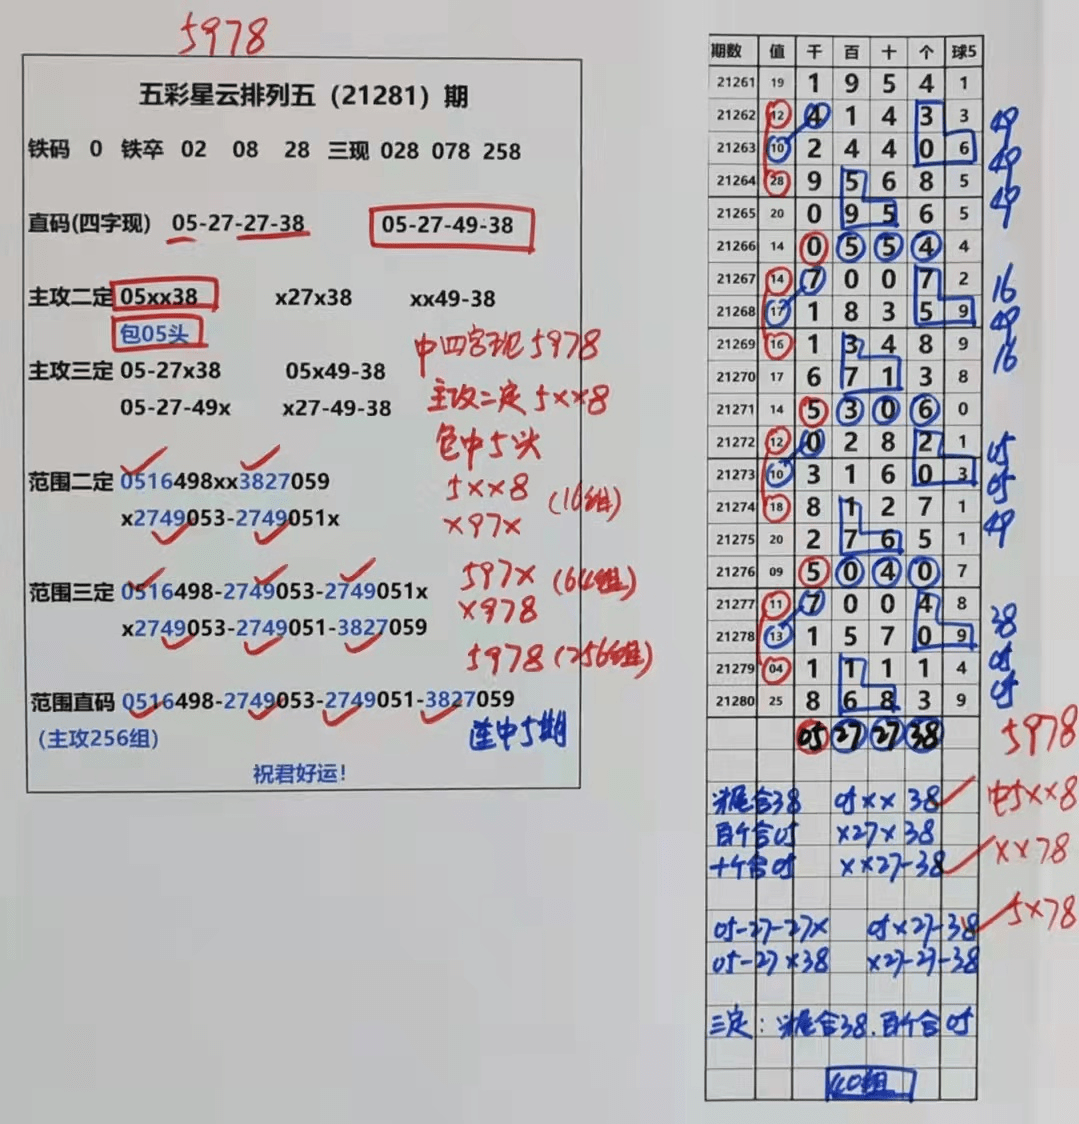 5978
五彩星云排列五（21281）期
铁码 0 铁卒 02 08 28 三现 028 078 258
直码(四字现) 05-27-27-38 05-27-49-38
主攻二定 05xx38 x27x38 xx49-38
包05头
中四字现5978
主攻三定 05-27x38 05x49-38
主攻二定5××8
05-27-49x x27-49-38
包中5头
范围二定 0516498xx3827059
5××8 (16组)
x2749053-2749051x
×97×
范围三定 0516498-2749053-2749051x
597× (64组)
x2749053-2749051-3827059
×978
5978 (256组)
范围直码 0516498-2749053-2749051-3827059
(主攻256组)
连中5期
祝君好运!
期数 值 千 百 十 个 球5
21261 19 1 9 5 4 1
21262 12 4 1 4 3 3 49
21263 10 2 4 4 0 6 49
21264 28 9 5 6 8 5 49
21265 20 0 9 5 6 5
21266 14 0 5 5 4 4
21267 14 7 0 0 7 2 16
21268 17 1 8 3 5 9 49
21269 16 1 3 4 8 9 16
21270 17 6 7 1 3 8
21271 14 5 3 0 6 0
21272 12 0 2 8 2 1 05
21273 10 3 1 6 0 3 05
21274 18 8 1 2 7 1 49
21275 20 2 7 6 5 1
21276 09 5 0 4 0 7
21277 11 7 0 0 4 8 38
21278 13 1 5 7 0 9 05
21279 04 1 1 1 1 4 05
21280 25 8 6 8 3 9
05 27 27 38 5978
头尾合38 05×× 38 中5××8
百个合05 ×27×38
十个合05 ××27-38 ××78
05-27-27× 05×27-38 5×78
05-27×38 ×27-27-38
三定:头尾合38.百个合05
40组